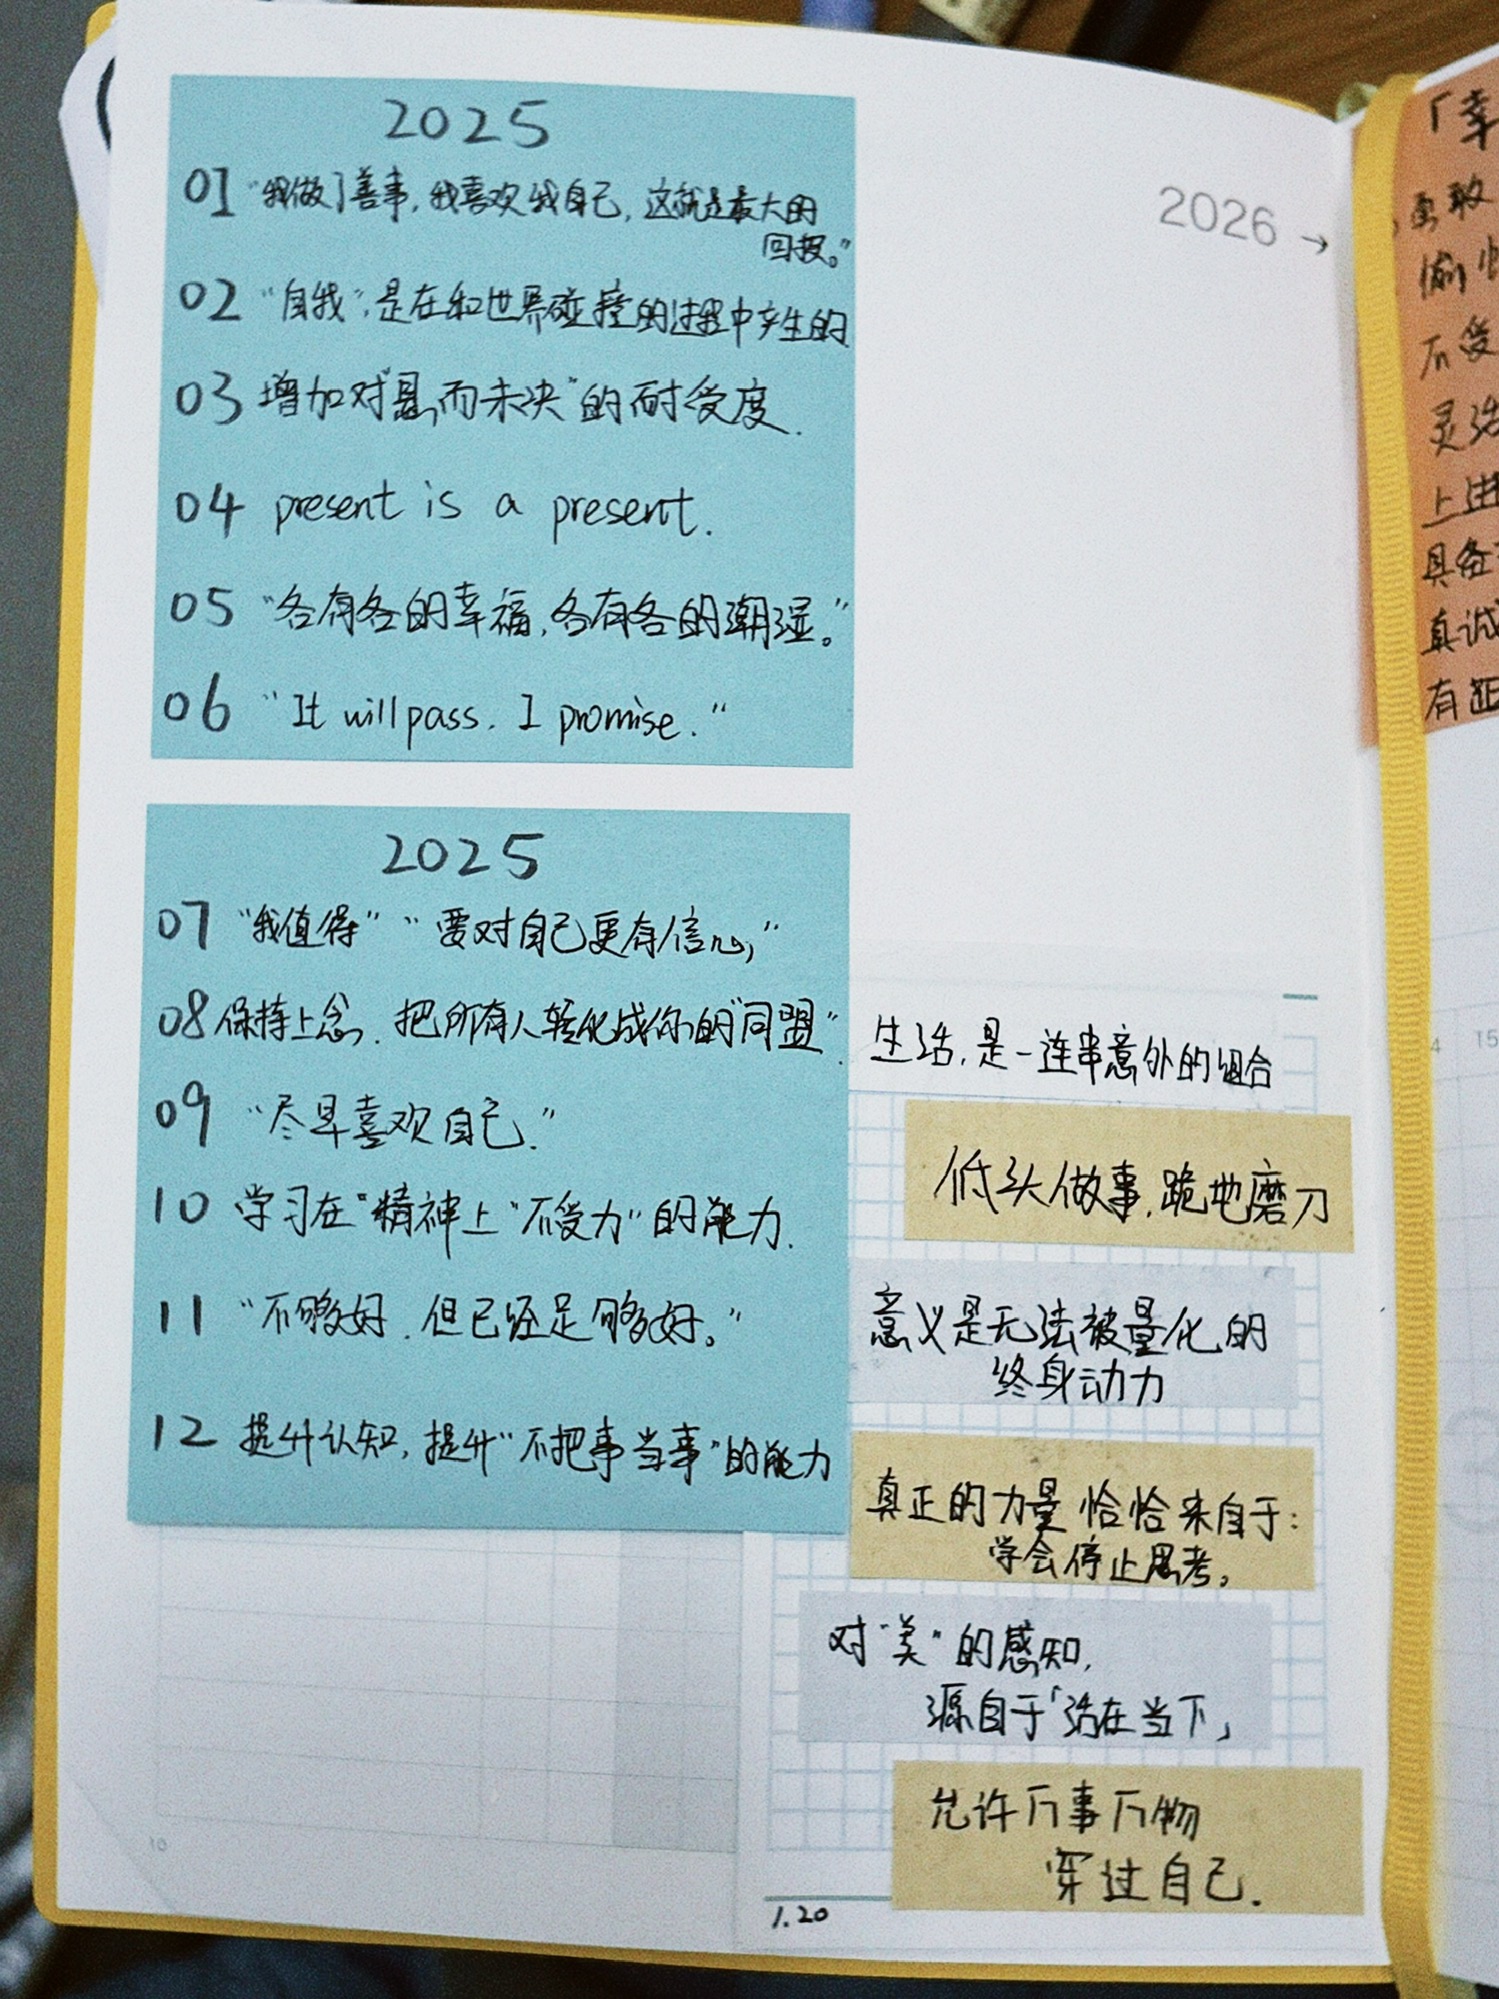 2025
01 “我做了善事，我喜欢我自己，这就是最大的
回报。”
02 “自我”，是在和世界碰撞的过程中产生的
03 增加对“悬而未决”的耐受度.
04 present is a present.
05 “各有各的幸福，各有各的潮湿。”
06 “It will pass. I promise.”
2025
07 “我值得” “要对自己更有信心”
08 保持上念，把所有人转化成你的“同盟”.
09 “尽早喜欢自己.”
10 学习在“精神上“不受力”的能力.
11 “不够好，但已经足够好。”
12 提升认知，提升“不把事当事”的能力
2026 →
生活，是一连串意外的组合
低头做事，跪地磨刀
意义是无法被量化的
终身动力
真正的力量 恰恰来自于：
学会停止思考。
对“美”的感知，
源自于「活在当下」
允许万事万物
穿过自己.
1.20
10
「幸
勇敢
愉
不受
灵活
上进
具备
真诚
有
4 15